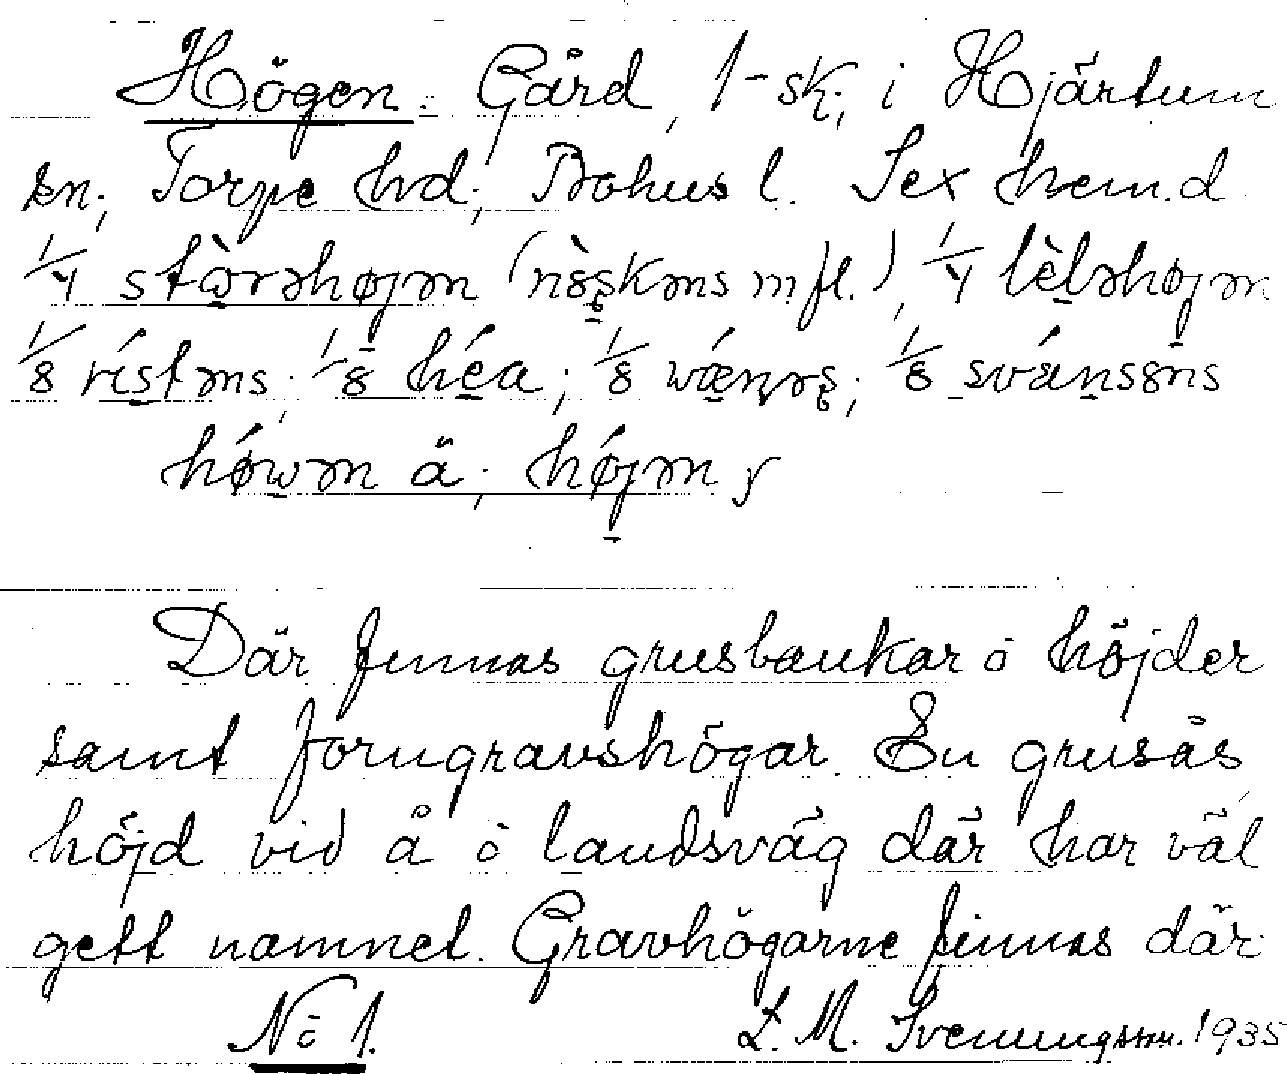 Högen. Gård, 1-sk; i Hjärtum
sn; Torpe hd; Bohus l. Sex hem.d
1/4 stòrəhøjən (nèskəns m fl.), 1/4 lèləhøjən
1/8 rístəns; 1/8 héa; 1/8 wǽnəs; 1/8 svánsəns
hówən ä; højən y
Där finnas grusbankar o höjder
samt forngravshögar. En grusås,
höjd vid å o landsväg där har väl
gett namnet. Gravhögarne finnas där
No 1. L. M. Svenungsson. 1935